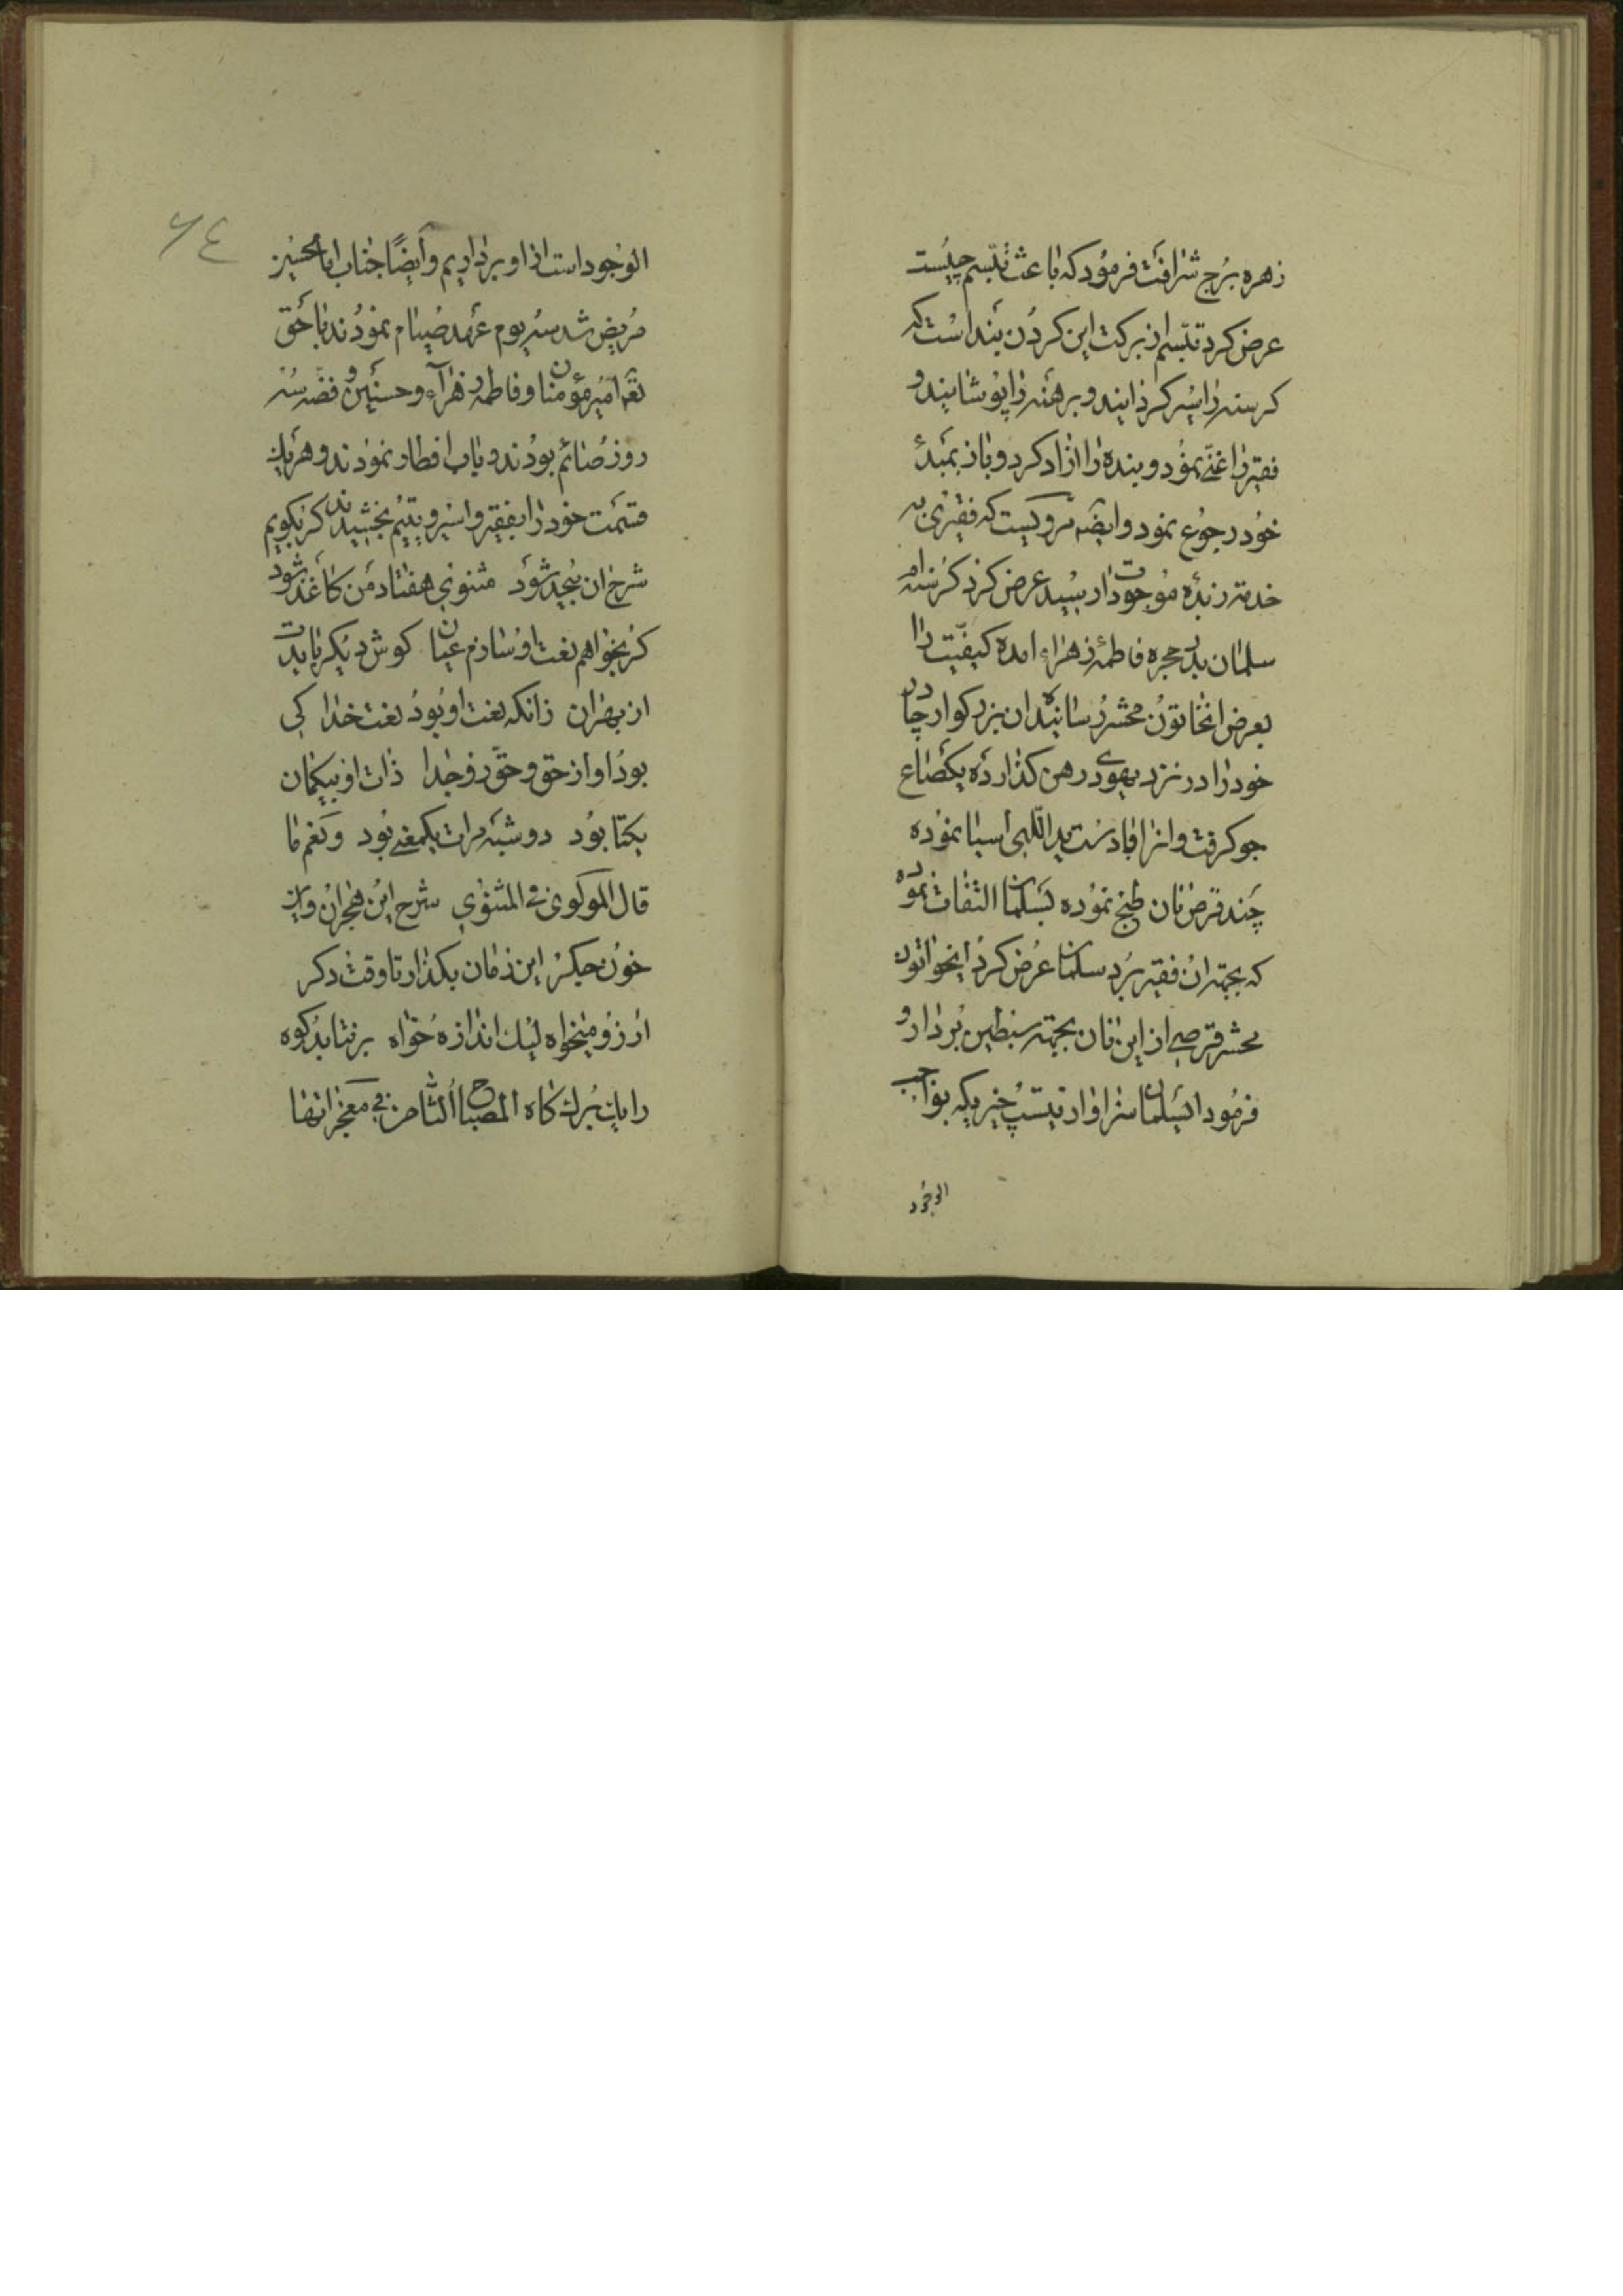 زهره برج شرافت فرمود که باعث تبسم چیست
عرض کرد تبسم از برکت این کردن بند است که
کرسنه را سیر کردانید و برهنه را پوشانید و
فقیر را غنی نمود و بنده را ازاد کرد و باز بمبدء
خود رجوع نمود وایضه مرویست که فقیری به
خدمه زبده موجودات رسید عرض کرد کرسنه ام
سلمان بدر حجره فاطمه زهراء امده کیفیت را
بعرض انخاتون محشر رسانید ان بزرکوار چادر
خود را در نزد یهودی رهن کذارده یکصاع
جو کرفت وانرا با دست ید اللهی اسیا نموده
چند قرص نان طبخ نموده بسلمان التفات نموده
که بجهة ان فقیر برد سلمان عرض کرد ایخواتون
محشر قرصی از این نان بجهة سبطین بردار و
فرمود ایسلمان سزاوار نیست خیریکه بواجب
الوجود
٦٤
الوجود است از او برداریم وأیضًا جناب امامحسین
مریض شد سه یوم عهد صیام نمودند با حق
تعه امیرمؤمنان و فاطمه زهرآء و حسنین و فضه سه
روز صائم بودند و باب افطار نمودند و هریك
قسمت خود را بفقیر و اسیر و یتیم بخشیدند کر بکویم
شرح ان بیحد شود مثنوی هفتاد من کاغذ شود
کر بخواهم نعت او سازم عیان کوش دیکر بایدت
از بهر ان زانکه نعت او بود نعت خدا کی
بود او از حق و حق زو جدا ذات او بیکمان
یکتا بود دو شبه مرات یکمعنی بود ونعم ما
قال المولوی فی المثنوی شرح این هجران واین
خون جیکر این زمان بکذار تا وقت دکر
ارزو میخواه لیك اندازه خواه برنتابد کوه
را یك برك کاه المصباح الثامن فی معجزاتها